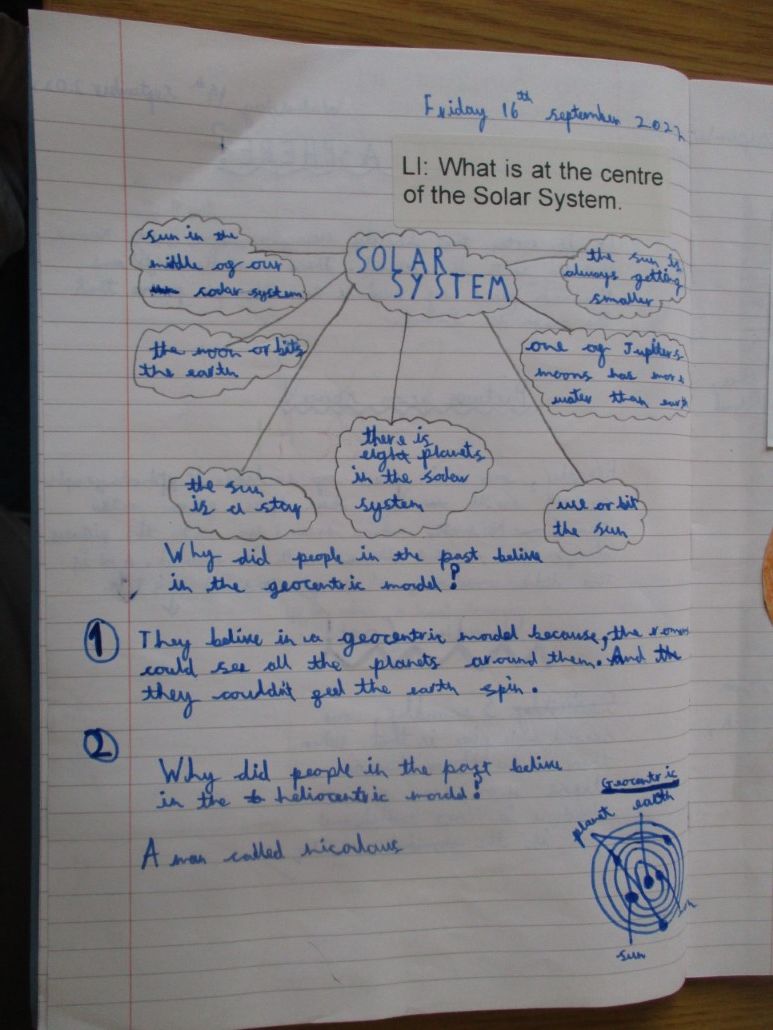 Friday 16th september 2022
LI: What is at the centre
of the Solar System.
SOLAR
SYSTEM
sun in the
middle of our
sodar system
the moon or bits
the earth
the sun
is a star
there is
eight planets
in the sodar
system
use or bit
the sun
one of Jupiters
moons has more
water than earth
the sun is
always getting
smaller
Why did people in the past belive
in the geocentric model?
1 They belive in a geocentric model because, the romans
could see all the planets around them. And the
they couldn't feel the earth spin.
2
Why did people in the past belive
in the heliocentric model?
A man called nicolaus
Geocentric
planet earth
sun